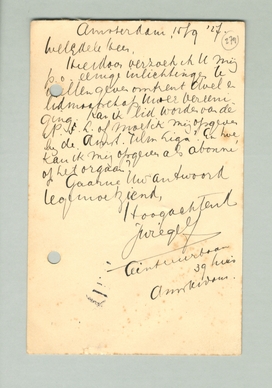 Amsterdam 15/9 '27.
279
Weledele heer,
Hierdoor verzoek ik U mij
p.o. eenige inlichtingen te
willen geven omtrent doel en
lidmaatschap Uwer vereeni-
ging. Kan ik lid worden van de
of moet ik mij opgeven
bij de Amst. Filmliga? En hoe
kan ik mij opgeven als abonné
op het orgaan?
Gaarne Uw antwoord
tegemoetziend,
Hoogachtend
Ceintuurbaan
39 huis
Amsterdam.